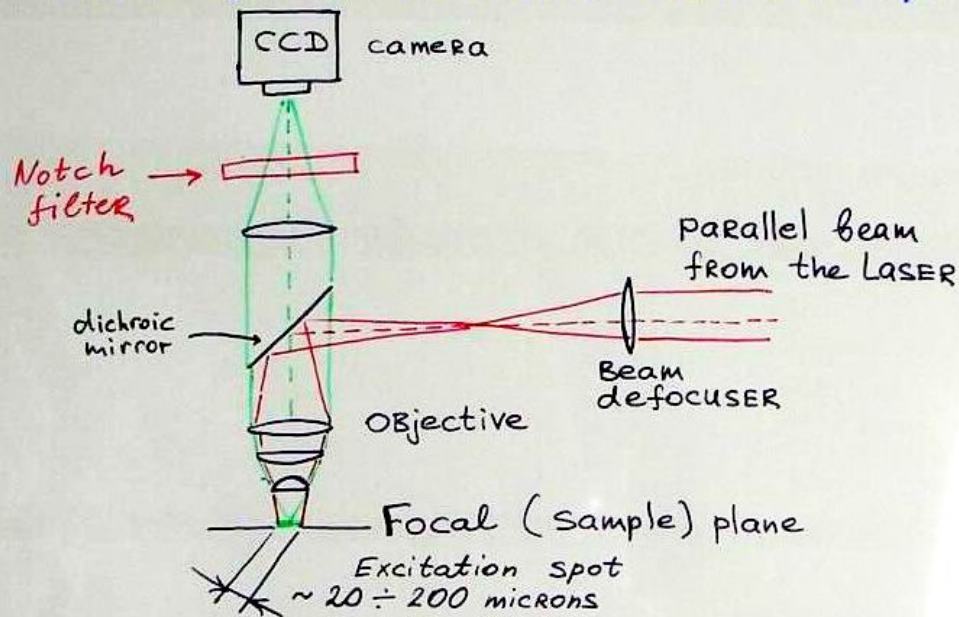 CCD camera
Notch
filter
parallel beam
from the LASER
dichroic
mirror
Beam
defocuser
Objective
Focal (sample) plane
Excitation spot
~ 20 ÷ 200 microns